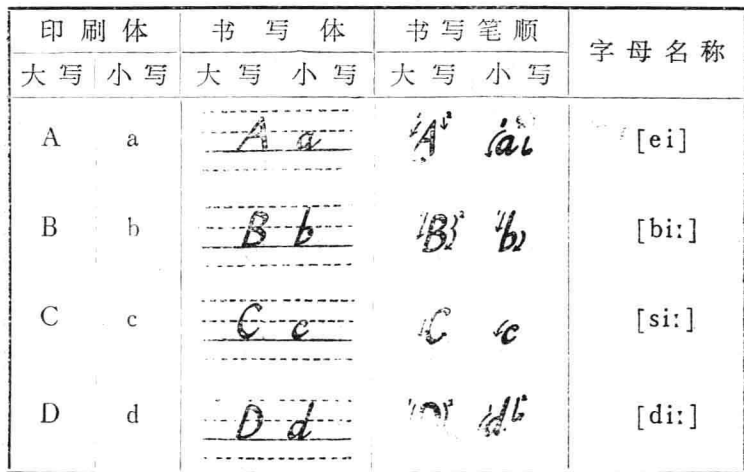 印刷体 书写体 书写笔顺 字母名称
大写 小写 大写 小写 大写 小写
A a A a A a [ei]
B b B b B b [bi:]
C c C c C c [si:]
D d D d D d [di:]